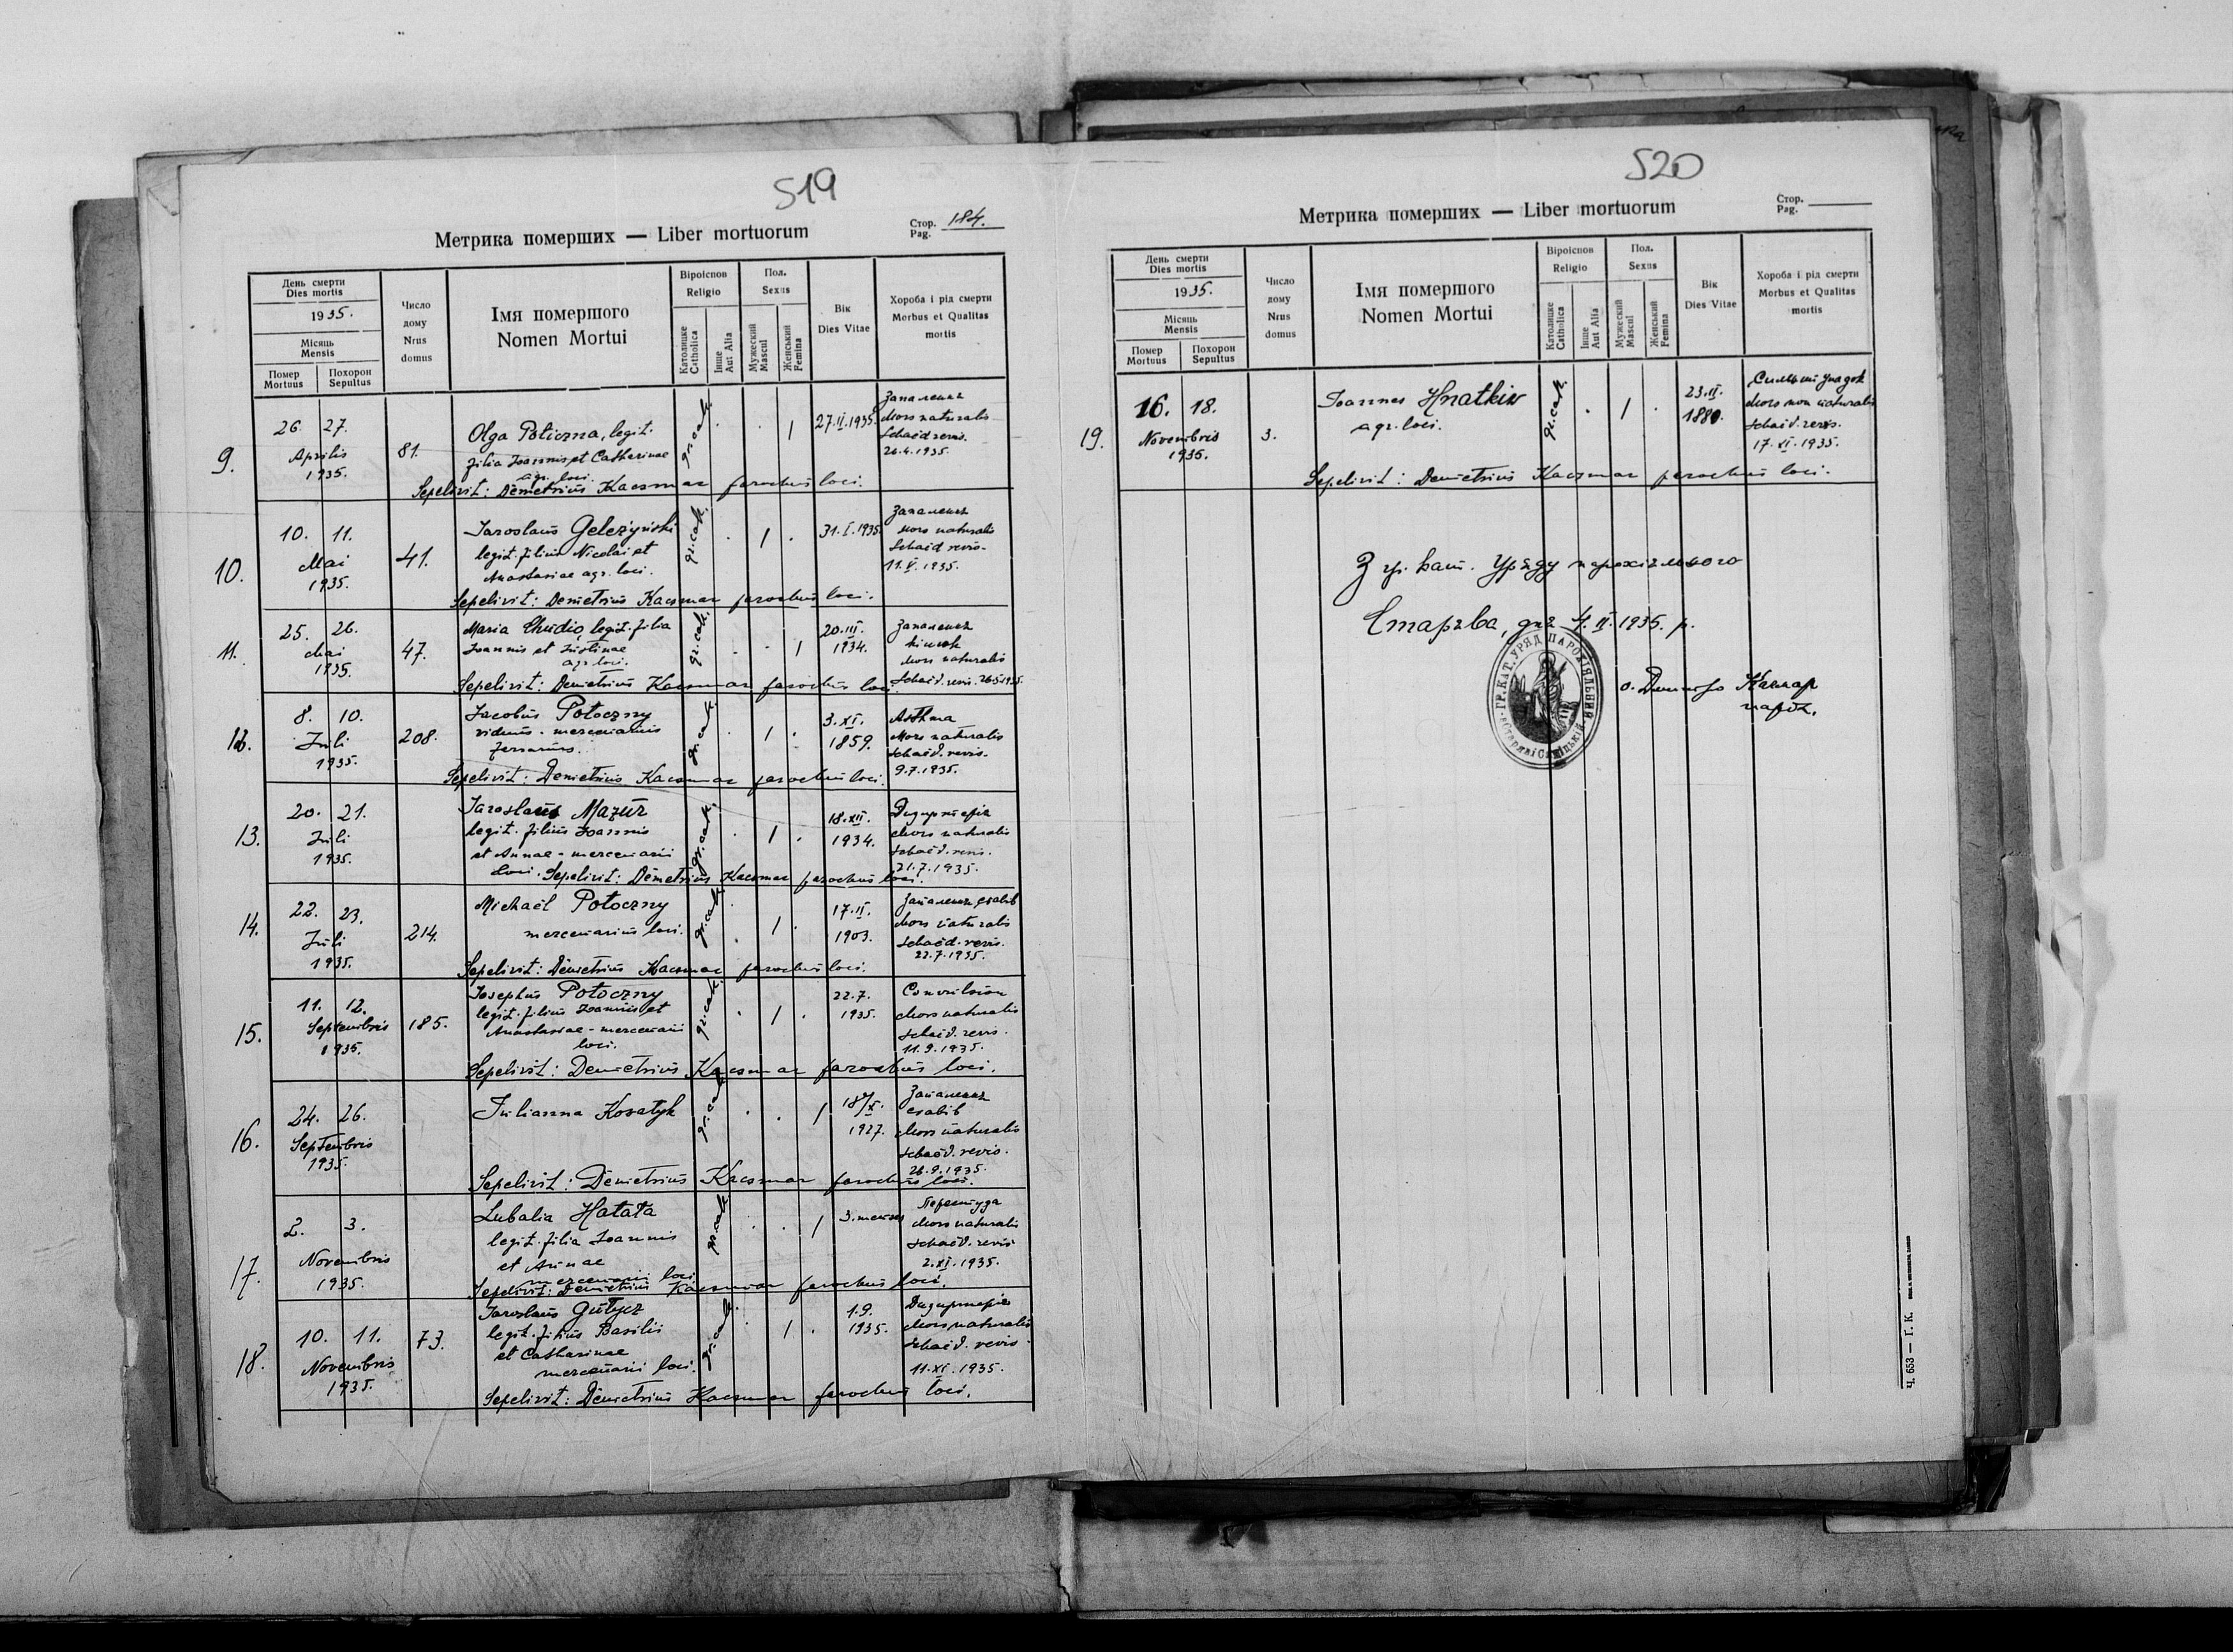 519
Метрика померших — Liber mortuorum
Стор.
Pag. 184.
День смерти
Dies mortis
1935.
Місяць
Mensis
Помер
Mortuus
Похорон
Sepultus
Число
дому
Nrus
domus
Імя помершого
Nomen Mortui
Віроіспов
Religio
Католицке
Catholica
Інше
Aut Alia
Пол.
Sexus
Мужеский
Mascul
Женський
Femina
Вік
Dies Vitae
Хороба і рід смерти
Morbus et Qualitas
mortis
9.
26. 27.
Aprilis
1935.
81.
Olga Poticzna, legit.
filia Joannis et Catharinae
agr. loci.
gr. cath.
27.II.1935.
Запалення
Mors naturalis
Schaed. revis.
26.4.1935.
Sepelivit: Demetrius Kaczmar parochus loci.
10.
10. 11.
Mai
1935.
41.
Jaroslaus Gelezyński
legit. filius Nicolai et
Anastasiae agr. loci.
gr. cath.
31.I.1935.
Запалення
Mors naturalis
Schaed. revis.
11.V.1935.
Sepelivit: Demetrius Kaczmar parochus loci.
11.
25. 26.
Mai
1935.
47.
Maria Chudio, legit. filia
Joannis et Justinae
agr. loci.
gr. cath.
20.III.
1934.
Запалення
кишок
Mors naturalis
Schaed. revis. 26.5.1935.
Sepelivit: Demetrius Kaczmar parochus loci.
12.
8. 10.
Juli
1935.
208.
Jacobus Potoczny
viduus - mercenarius
gr. cath.
3.XI.
1859.
Asthma
Mors naturalis
Schaed. revis.
9.7.1935.
Sepelivit: Demetrius Kaczmar parochus loci.
13.
20. 21.
Juli
1935.
Jaroslaus Mazur
legit. filius Joannis
et Annae - mercenarii
loci.
gr. cath.
18.XII.
1934.
Mors naturalis
Schaed. revis.
21.7.1935.
Sepelivit: Demetrius Kaczmar parochus loci.
14.
22. 23.
Juli
1935.
214.
Michaël Potoczny
mercenarius loci.
gr. cath.
17.II.
1903.
Запалення
Mors naturalis
Schaed. revis.
22.7.1935.
Sepelivit: Demetrius Kaczmar parochus loci.
15.
11. 12.
Septembris
1935.
185.
Josephus Potoczny
legit. filius Joannis et
Anastasiae - mercenarii
loci.
gr. cath.
22.7.
1935.
Mors naturalis
Schaed. revis.
11.9.1935.
Sepelivit: Demetrius Kaczmar parochus loci.
16.
24. 26.
Septembris
1935.
Julianna Kosatyk
gr. cath.
1927.
Запалення
Mors naturalis
Schaed. revis.
26.9.1935.
Sepelivit: Demetrius Kaczmar parochus loci.
17.
2. 3.
Novembris
1935.
Lubalia Hatata
legit. filia Joannis
et Annae
mercenarii loci
gr. cath.
3. menses
Перестуда
Mors naturalis
Schaed. revis
2.XI.1935.
Sepelivit: Demetrius Kaczmar parochus loci.
18.
10. 11.
Novembris
1935.
73.
Jaroslaus Gutycz
legit. filius Basilii
et Catharinae
mercenarii loci.
gr. cath.
1.9.
1935.
Mors naturalis
Schaed. revis.
11.XI.1935.
Sepelivit: Demetrius Kaczmar parochus loci.
520
Метрика померших — Liber mortuorum
Стор.
Pag.
День смерти
Dies mortis
1935.
Місяць
Mensis
Помер
Mortuus
Похорон
Sepultus
Число
дому
Nrus
domus
Імя помершого
Nomen Mortui
Віроіспов
Religio
Католицке
Catholica
Інше
Aut Alia
Пол.
Sexus
Мужеский
Mascul
Женський
Femina
Вік
Dies Vitae
Хороба і рід смерти
Morbus et Qualitas
mortis
19.
16. 18.
Novembris
1935.
3.
Joannes Hnatkiw
agr. loci.
gr. cath.
23.II.
1880.
Mors non naturalis
Schaed. revis.
17.XI.1935.
Sepelivit: Demetrius Kaczmar parochus loci.
З гр. кат. Уряду парохіяльного
Старява, дня 4.II.1935. р.
ГР. КАТ. УРЯД ПАРОХІЯЛЬНИЙ
о. Дмитро Качмар
парох.
Ч. 653 — Г. К.